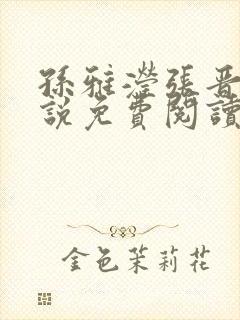 孫雅瀅張晉
說免費閱讀
金色茉莉花